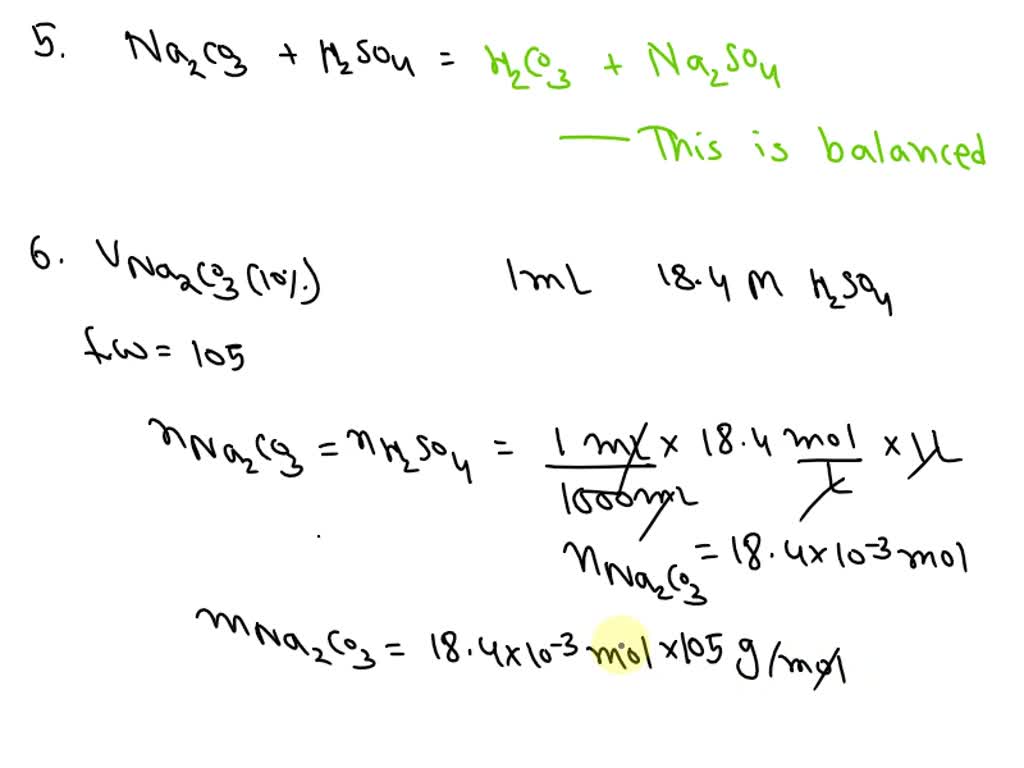 5. Na₂CO₃ + H₂SO₄ = H₂CO₃ + Na₂SO₄
— This is balanced
6. V Na₂CO₃ (10%) 1mL 18.4 M H₂SO₄
fw = 105
nNa₂CO₃ = nH₂SO₄ = 1 mL / 1000mL × 18.4 mol / L × 1L
nNa₂CO₃ = 18.4×10⁻³ mol
mNa₂CO₃ = 18.4×10⁻³ mol ×105 g/mol